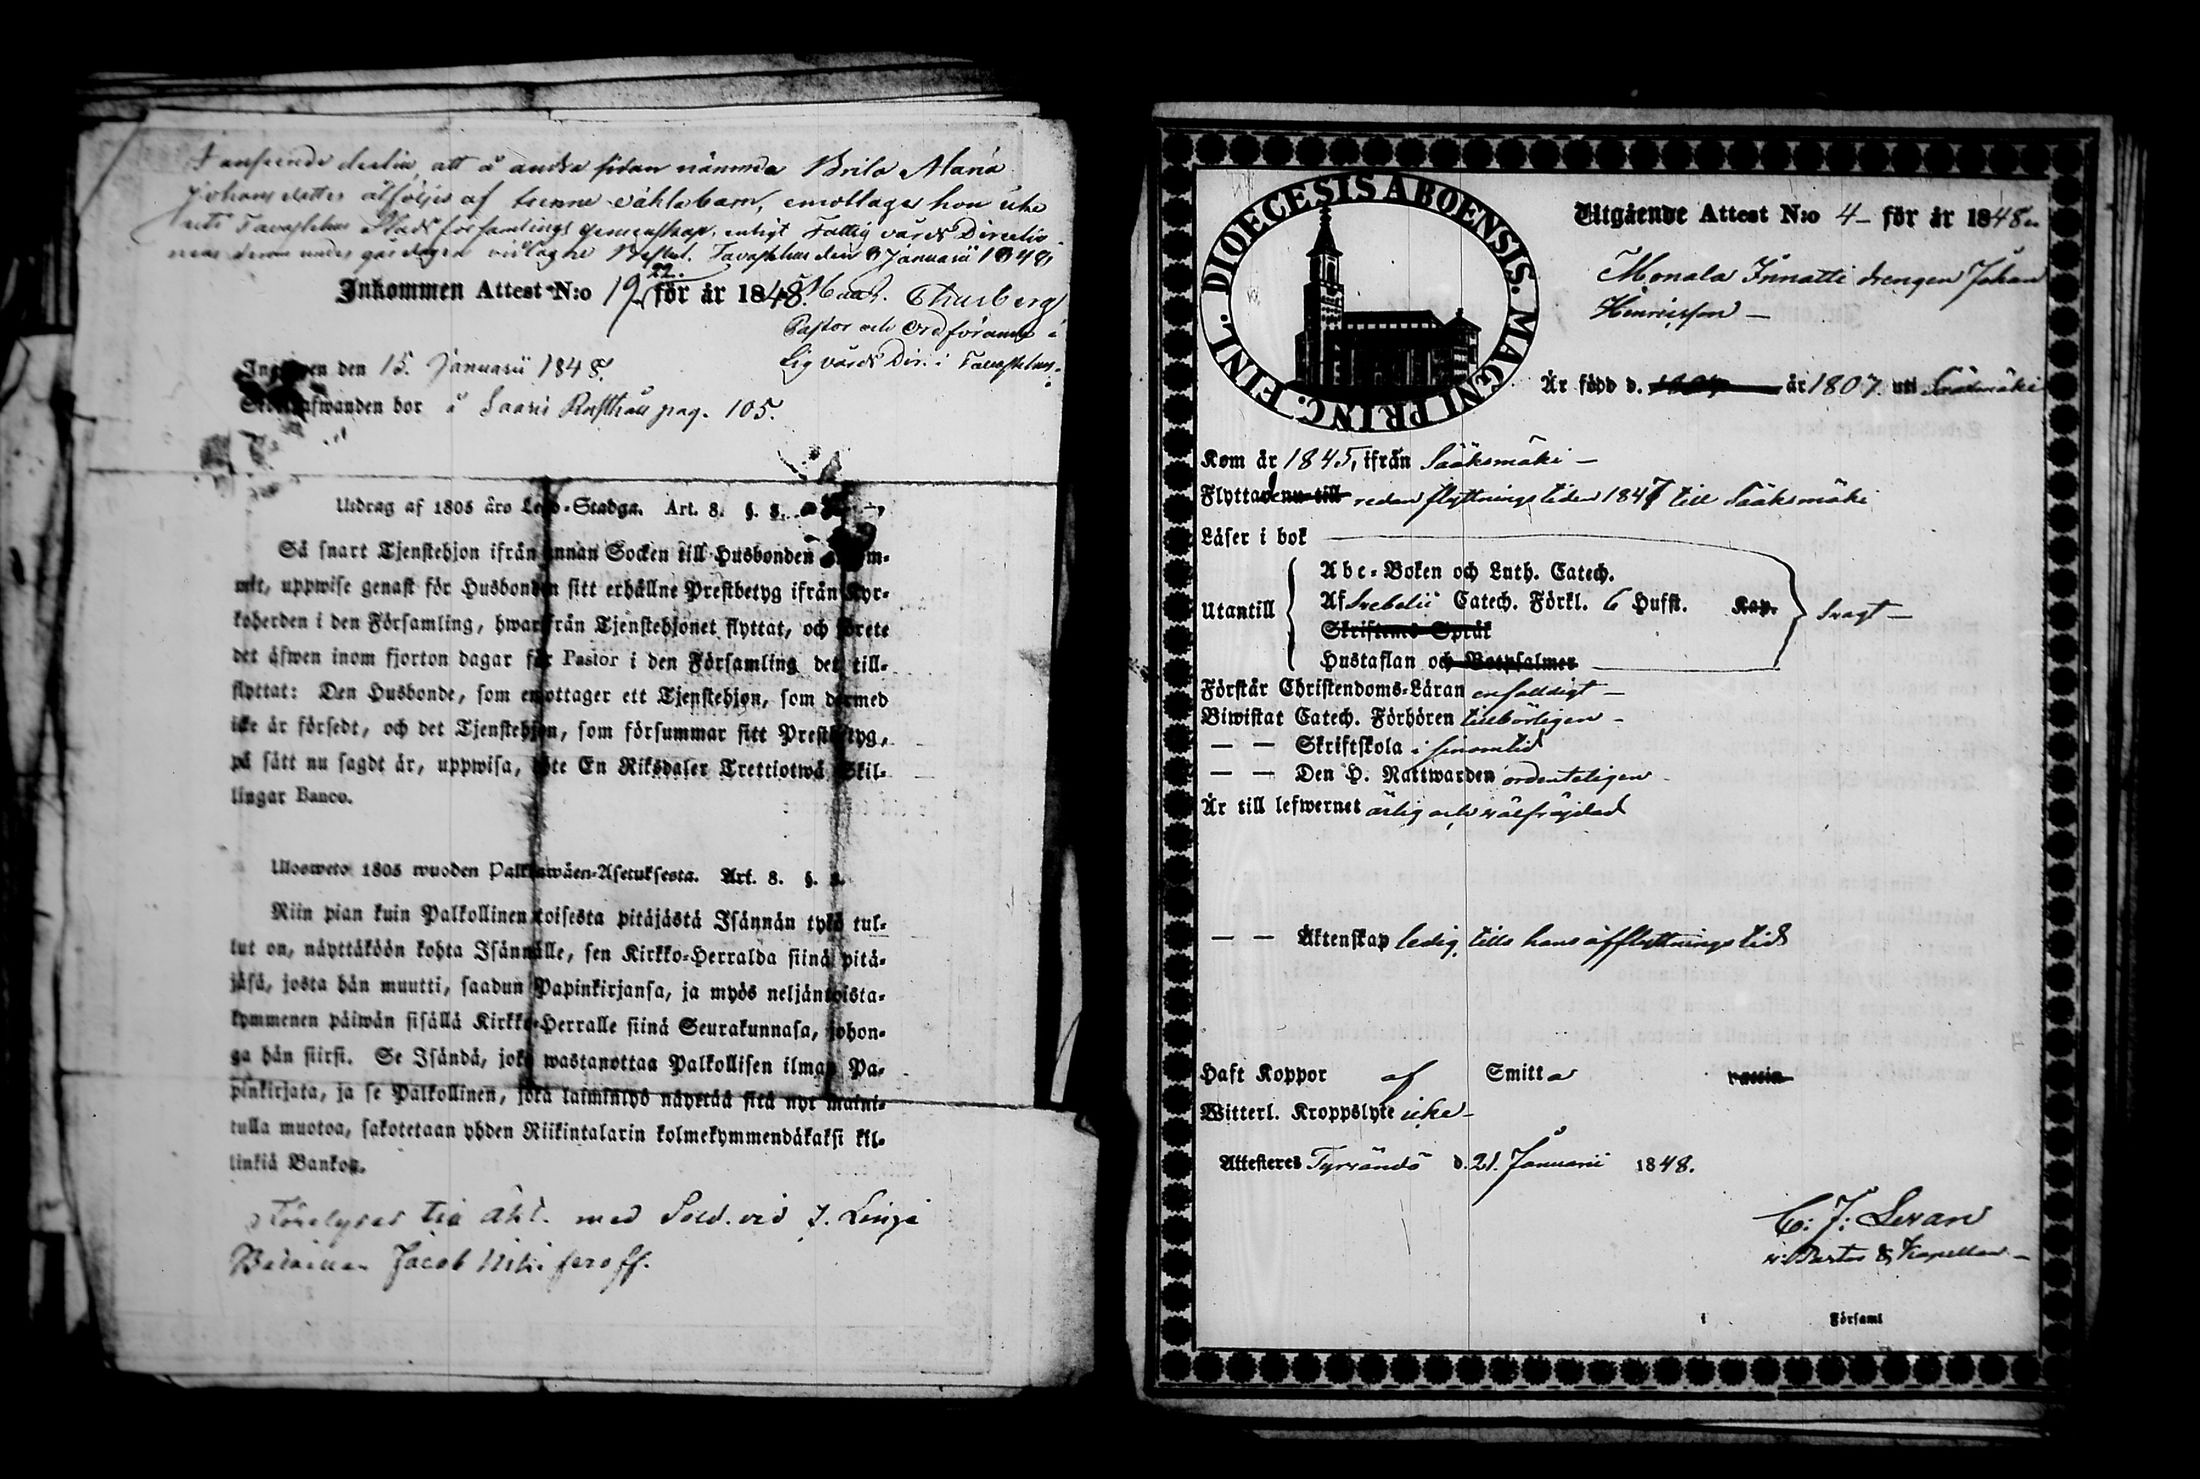 I anseende dertill, att å andra sidan nämnda Brita Maria
Johansdotter åtföljes af tvenne oäkta barn, emottages hon icke
uti Tavastehus Stads församlings gemenskap, enligt Fattigvårds Directio
nens derom under gårdagen utslagne Beslut. Tavastehus den 8 Januarii 1848.
22.
Inkommen Attest N:o 19 för år 1848.
Thusberg
Pastor och Ordförande i
Figvårds Dir. i Tavastehus.
den 15. Januarii 1848.
bor å Saaris Rusthåll pag. 105.
Utdrag af 1805 års Lego-Stadga. Art. 8. §. 8.
Så snart Tjenstehjon ifrån annan Socken till Husbonden
mit, uppwise genast för Husbonden sitt erhållne Prestbetyg ifrån Kyr-
koherden i den Församling, hwarifrån Tjenstehjonet flyttat, och förete
det äfwen inom fjorton dagar för Pastor i den Församling det till-
flyttat: Den Husbonde, som emottager ett Tjenstehjon, som dermed
icke är försedt, och det Tjenstehjon, som försummar sitt Prestbetyg,
på sätt nu sagdt är, uppwisa, böte En Riksdaler Trettiotwå Skil-
lingar Banco.
Ulosweto 1805 wuoden Palkkawäen-Asetuksesta. Art. 8. §. 8.
Niin pian kuin Palkollinen toisesta pitäjästä Isännän tykö tul-
lut on, näyttäköön kohta Isännälle, sen Kirkko-Herralda siinä pitä-
jäsä, josta hän muutti, saadun Papinkirjansa, ja myös neljäntoista-
kymmenen päiwän sisällä Kirkko-Herralle siinä Seurakunnasa, johon-
ga hän siirsi. Se Isändä, joka wastanottaa Palkollisen ilman Pa-
pinkirjata, ja se Palkollinen, joka laiminlyö näyttää sitä nyt maini-
tulla muotoa, sakotetaan yhden Riikintalarin kolmekymmendäkaksi kil-
linkiä Bankog.
Förelyses till äkt. med Sold. vid
Jacob Nikiferoff.
DIOECESIS ABOENSIS. MAGNI PRINC. FINL.
Utgående Attest N:o 4 för år 1848.
Monala Innatti drengen Johan
Henricsson
Är född d. år 1807. uti Sääxmäki
Kom år 1845, ifrån Sääksmäki
Flyttade redan flyttningstiden 1847 till Sääksmäki
Läser i bok
Abc-Boken och Luth. Catech.
Utantill Af Svebelii Catech. Förkl. 6 Hufst. Kap. Svagt
Skriftenes Språk
Hustaflan och Botpsalmer
Förstår Christendoms-Läran enfaldigt
Biwistat Catech. Förhören tillbörligen
— — Skriftskola i sinom tid
— — Den H. Nattwarden ordenteligen
Är till lefwernet ärlig och välfrägdad
— — Äktenskap ledig, tills hans afflyttningstid
Haft Koppor af Smitta vaccin
Witterl. Kroppslyte icke
Attesteres Tyrväntö d. 21. Januarii 1848.
C: J: Levan
v. Pastor & Kapellan
i Församl